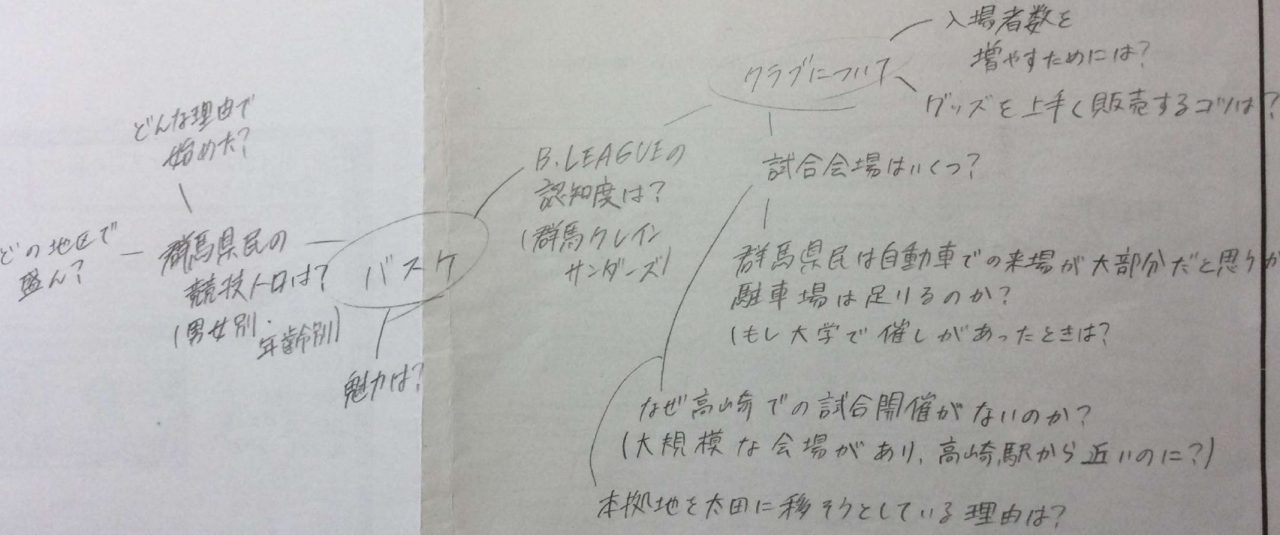 どんな理由で
始めた?
どの地区で
盛ん?
群馬県民の
競技人口は?
(男女別・
年齢別)
バスケ
魅力は?
B.LEAGUEの
認知度は?
(群馬クレイン
サンダーズ)
クラブについて
入場者数を
増やすためには?
グッズを上手く販売するコツは?
試合会場はいくつ?
群馬県民は自動車での来場が大部分だと思うが
駐車場は足りるのか?
(もし大学で催しがあったときは?
なぜ高崎での試合開催がないのか?
(大規模な会場があり、高崎駅から近いのに?)
本拠地を太田に移そうとしている理由は?